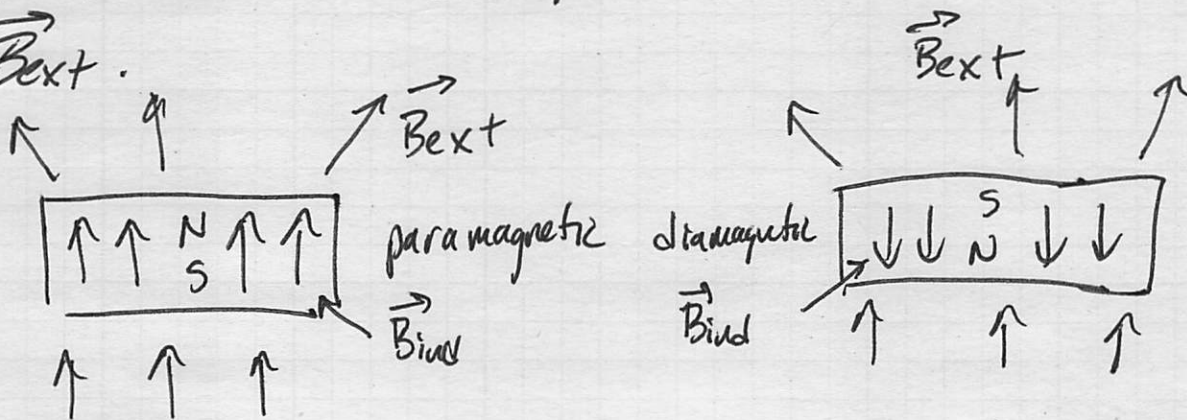 Bext.
Bext
Bext
N
S
paramagnetic
Bind
diamagnetic
S
N
Bind